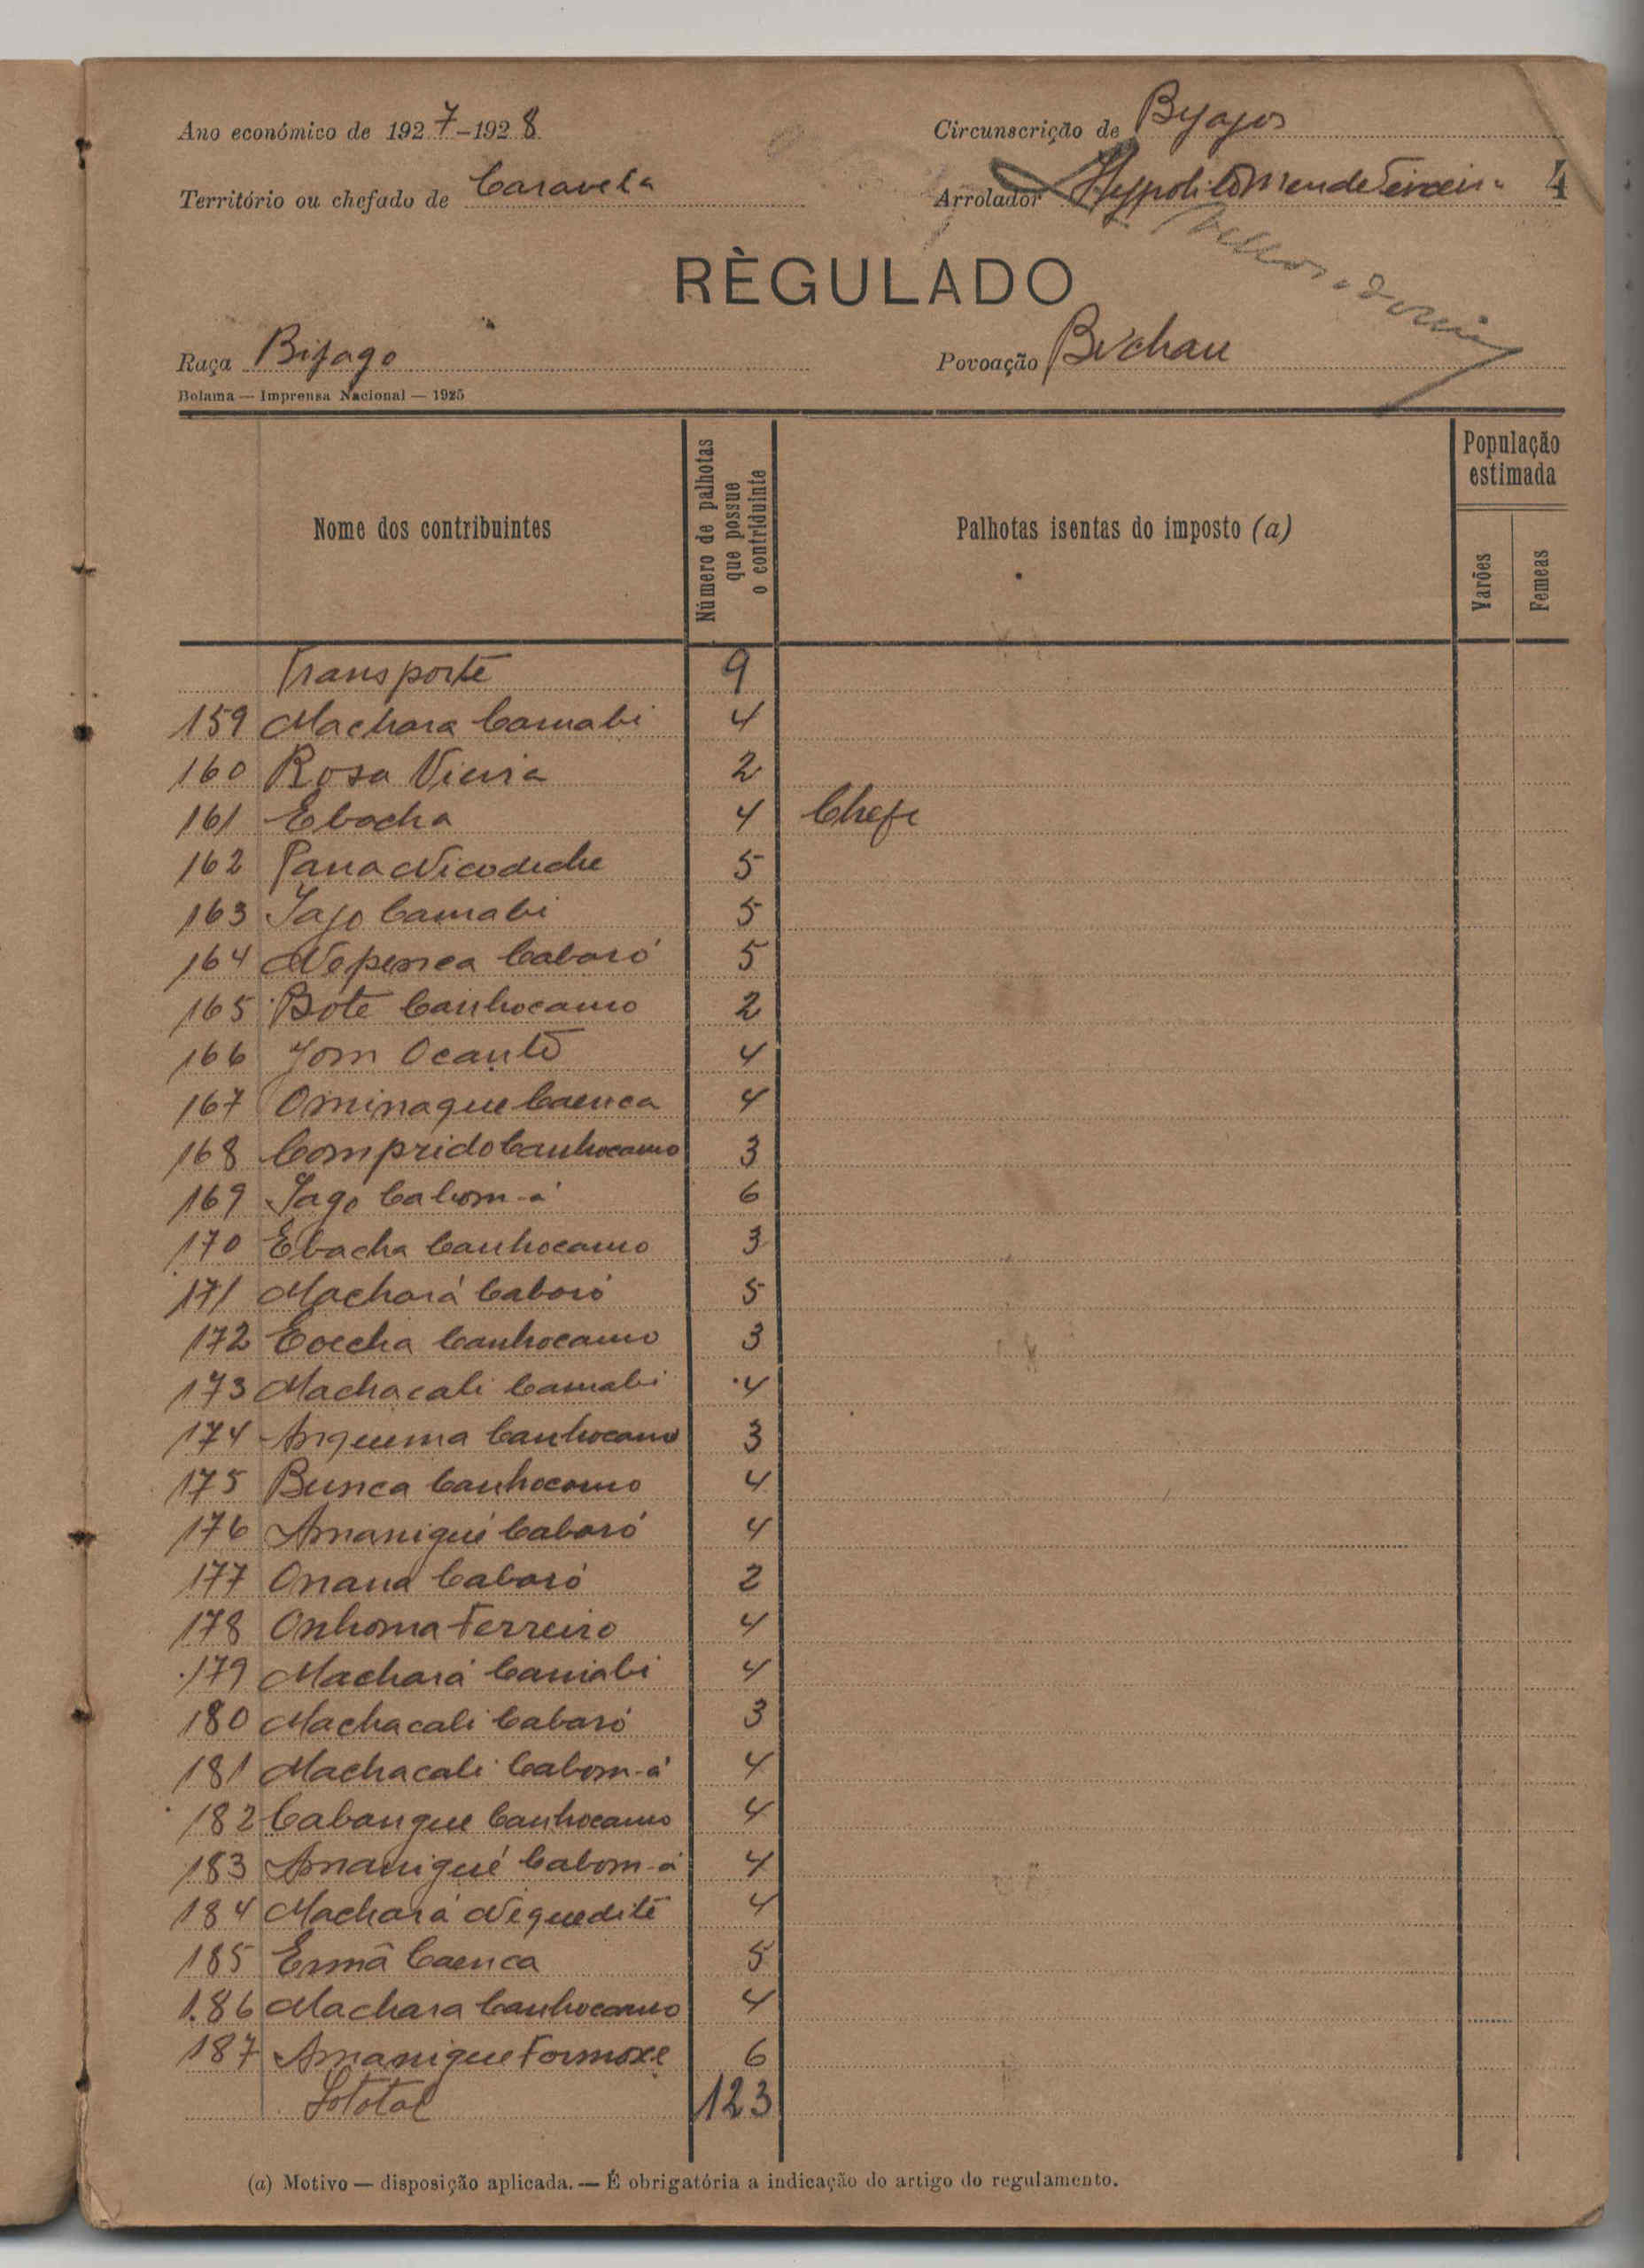 Ano económico de 1927-1928
Circunscrição de Byagos
Território ou chefado de Caravela
Arrolador Hyppolito Mende 4
RÈGULADO
Raça Bijago
Povoação Bichau
Bolama — Imprensa Nacional — 1925
Nome dos contribuintes
Número de palhotas que possue o contriduinte
Palhotas isentas do imposto (a)
População estimada
Varões
Femeas
Transporte 9
159 Machara Camabi 4
160 Rosa Vieira 2
161 Ebocha 4 Chefe
162 Pana Nicodeche 5
163 Jago Camabi 5
164 Nepenca Caboró 5
165 Bote Canhocamo 2
166 Jom Ocantó 4
167 Ominaque Caenca 4
168 Comprido Canhocamo 3
169 Jago Cabom-á 6
170 Ebacha Canhocamo 3
171 Machorá Caboró 5
172 Eoecha Canhocamo 3
173 Machacali Camabi 4
174 Anquema Canhocamo 3
175 Bunca Canhocamo 4
176 Amanigué Caboró 4
177 Onana Caboró 2
178 Onhoma Ferreiro 4
179 Machará Camabi 4
180 Machacali Caboró 3
181 Machacali Cabom-á 4
182 Cabangue Canhocamo 4
183 Amanigué Cabom-á 4
184 Machorá Neguedite 4
185 Ermâ Caenca 5
186 Machara Canhocamo 4
187 Amanigue Formoxe 6
Sototal 123
(a) Motivo — disposição aplicada. — É obrigatória a indicação do artigo do regulamento.